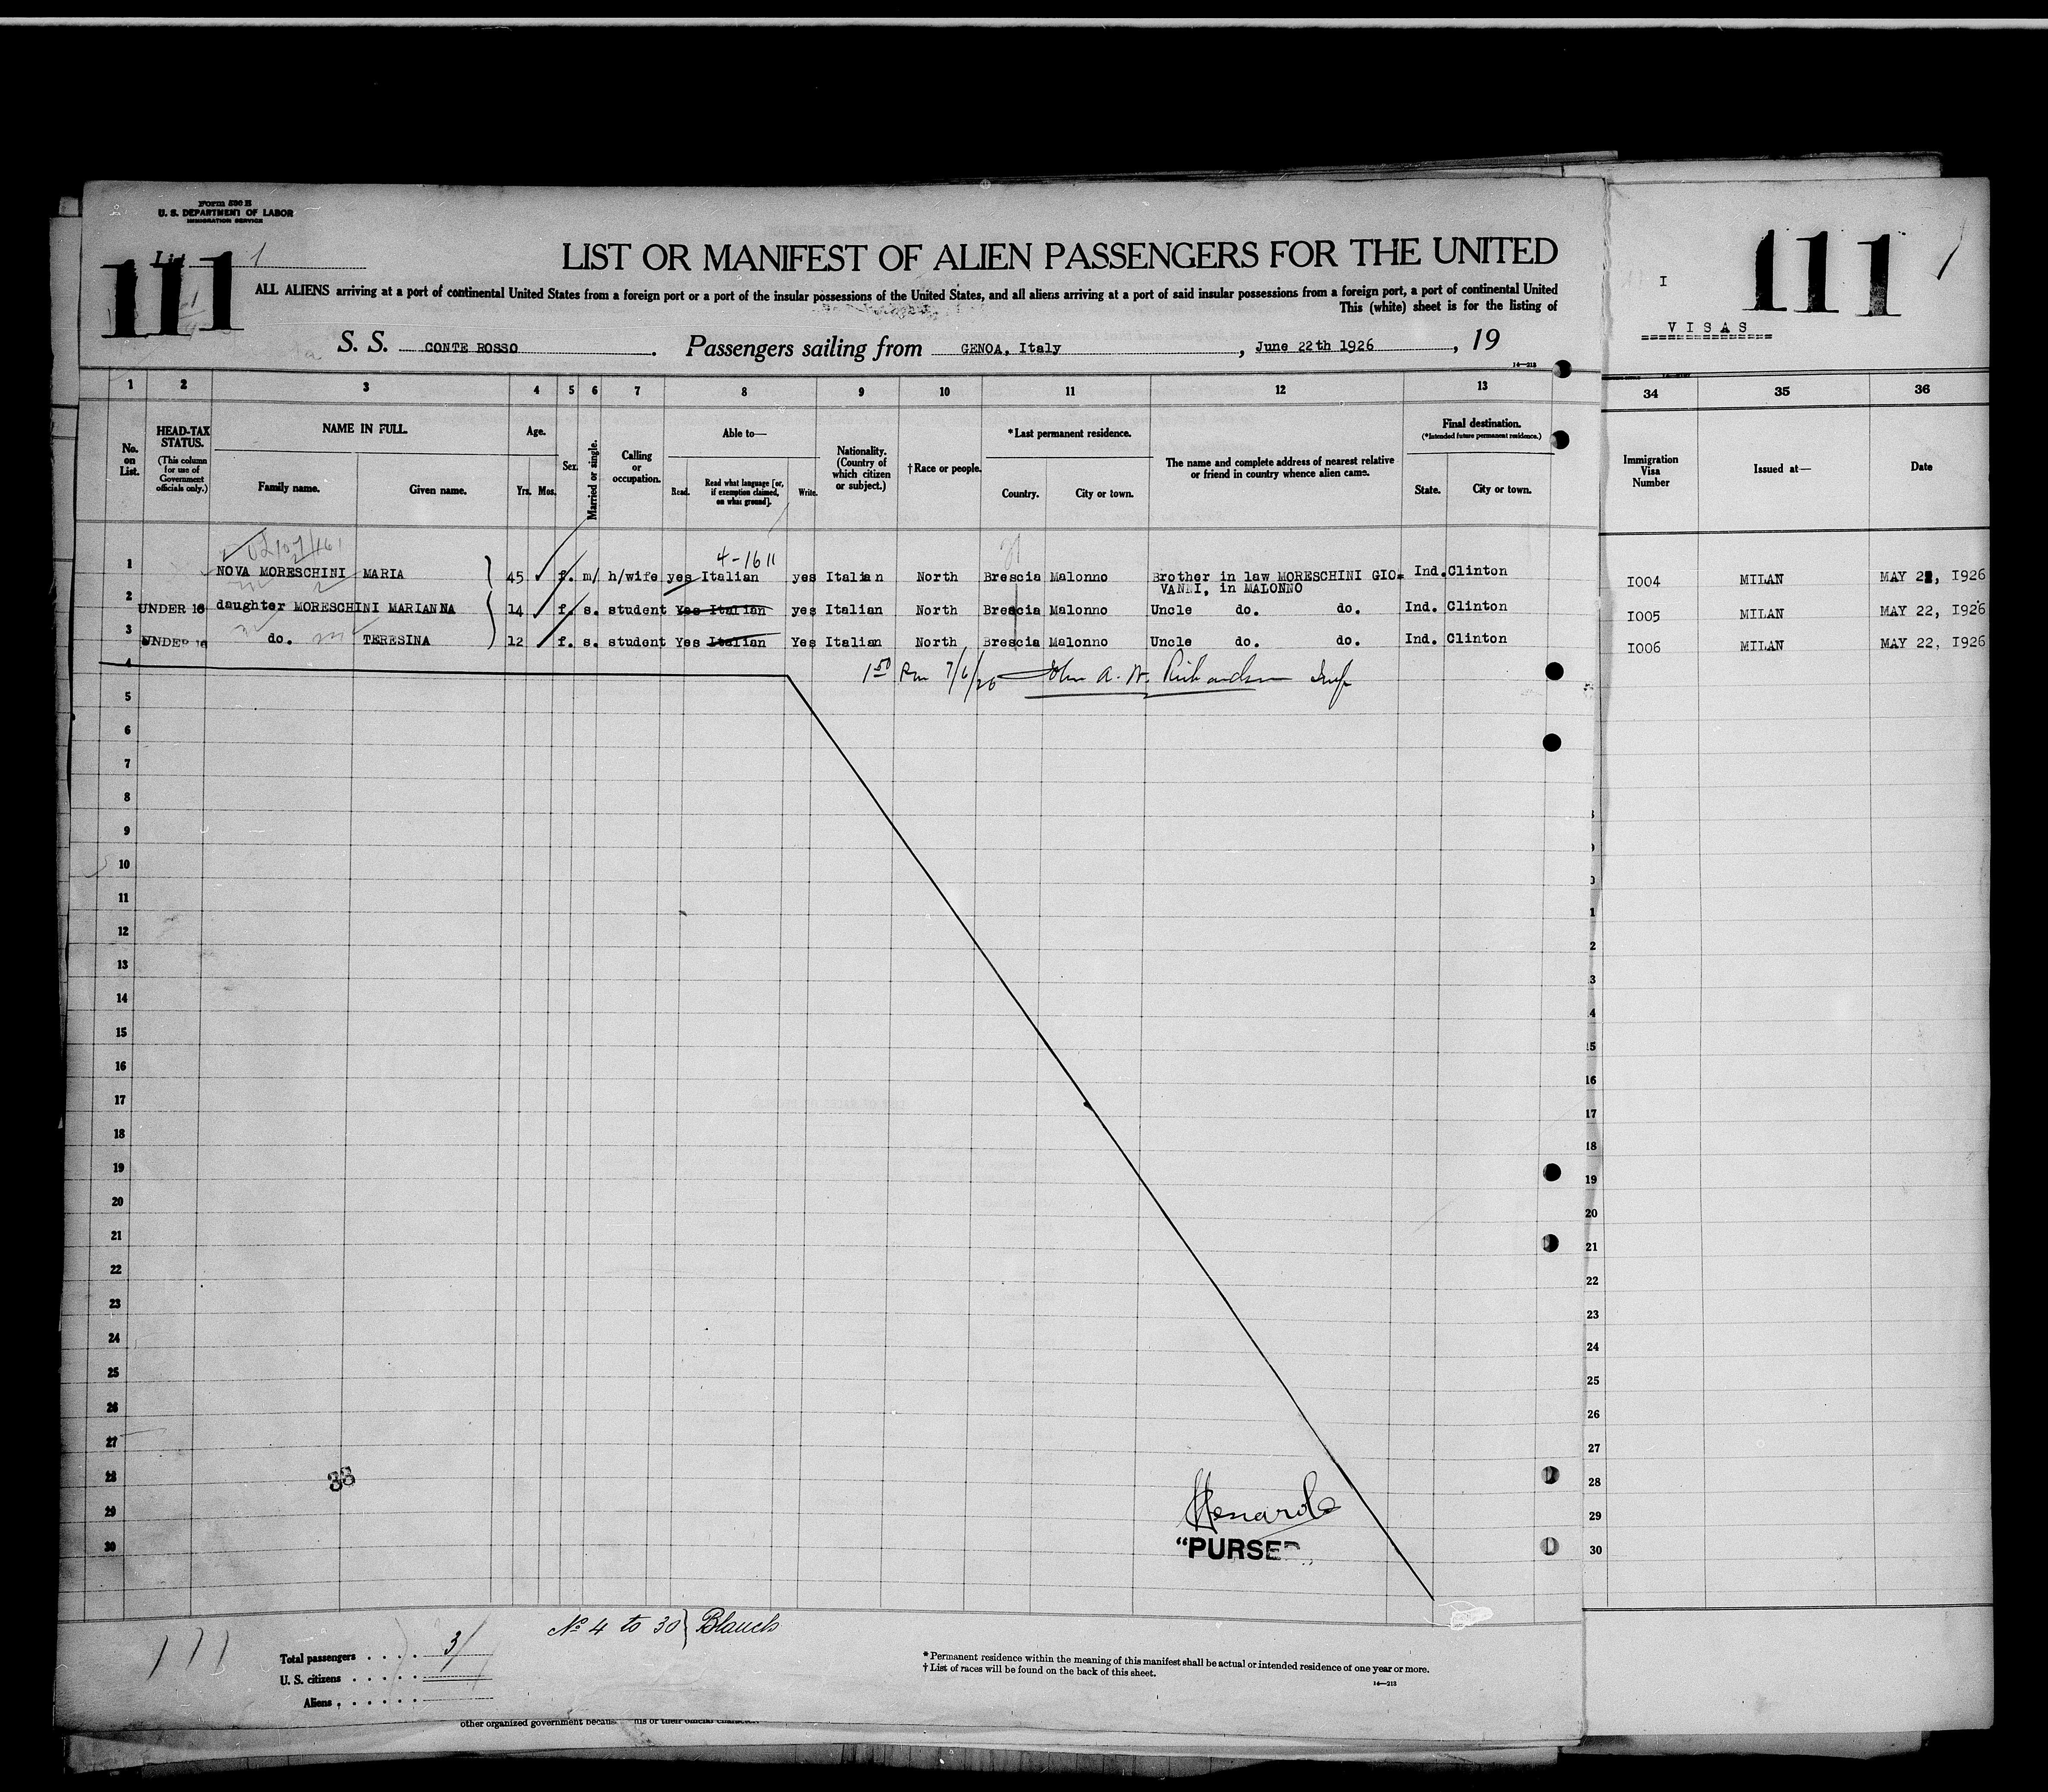 Form 500 B
U. S. DEPARTMENT OF LABOR
IMMIGRATION SERVICE
List 1
111
LIST OR MANIFEST OF ALIEN PASSENGERS FOR THE UNITED
ALL ALIENS arriving at a port of continental United States from a foreign port or a port of the insular possessions of the United States, and all aliens arriving at a port of said insular possessions from a foreign port, a port of continental United
This (white) sheet is for the listing of
S. S. CONTE ROSSO. Passengers sailing from GENOA, Italy, June 22th 1926, 19
14—213
I 111 /
VISAS
1 2 3 4 5 6 7 8 9 10 11 12 13 34 35 36
No. on List.
HEAD-TAX STATUS.
(This column for use of Government officials only.)
NAME IN FULL.
Family name. Given name.
Age.
Yrs. Mos.
Sex.
Married or single.
Calling or occupation.
Able to—
Read. Read what language [or, if exemption claimed, on what ground]. Write.
Nationality. (Country of which citizen or subject.)
†Race or people.
*Last permanent residence.
Country. City or town.
The name and complete address of nearest relative or friend in country whence alien came.
Final destination.
(*Intended future permanent residence.)
State. City or town.
Immigration Visa Number
Issued at—
Date
4-16 11
1 NOVA MORESCHINI MARIA 45 f. m/ h/wife yes Italian yes Italian North Brescia Malonno Brother in law MORESCHINI GIO= Ind. Clinton I004 MILAN MAY 22, I926
VANNI, in MALONNO
2 UNDER 16 daughter MORESCHINI MARIANNA 14 f. s. student Yes Italian yes Italian North Brescia Malonno Uncle do. do. Ind. Clinton I005 MILAN MAY 22, I926
3 UNDER 16 do. TERESINA 12 f. s. student Yes Italian Yes Italian North Brescia Malonno Uncle do. do. Ind. Clinton I006 MILAN MAY 22, I926
4 1 50 Rm 7/6/26 John A. W. Richardson Insp
5
6
7
8
9
10
11
12
13
14
15
16 16
17 17
18 18
19 19
20 20
21 21
22 22
23 23
24 24
25 25
26 26
27 27
28 38 28
29 29
30 "PURSER 30
111
No 4 to 30} Blanch
Total passengers . . . . 3
U. S. citizens . . . . .
Aliens . . . . . .
* Permanent residence within the meaning of this manifest shall be actual or intended residence of one year or more.
† List of races will be found on the back of this sheet.
14—213
other organized government